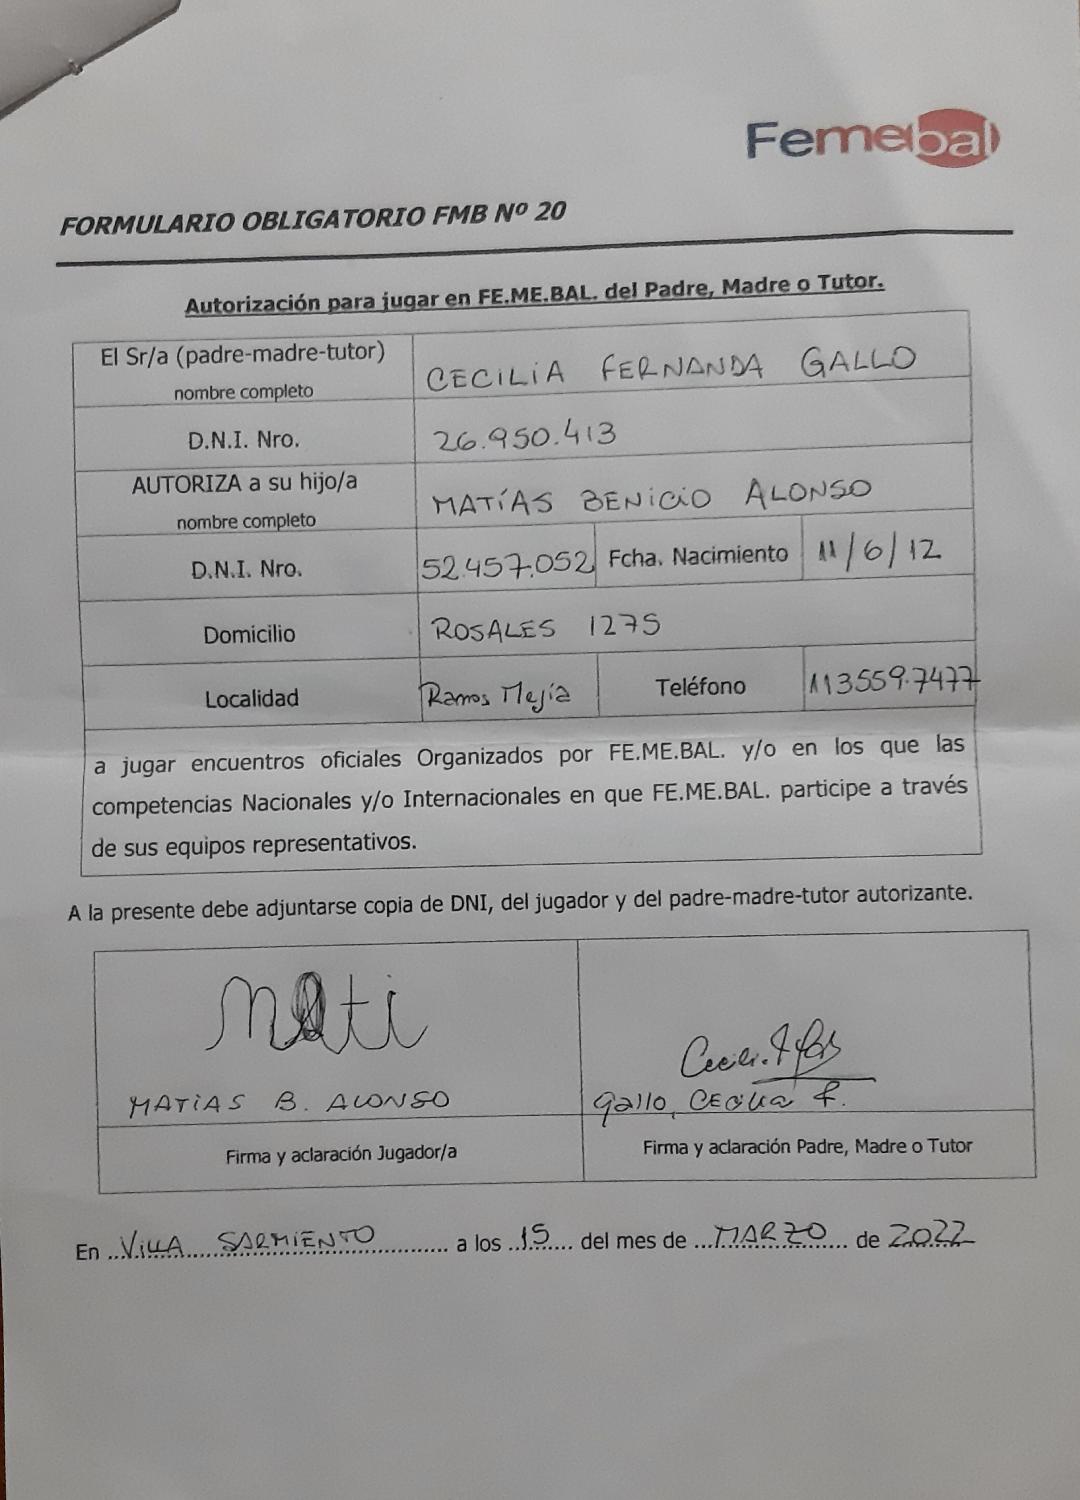 Femebal
FORMULARIO OBLIGATORIO FMB Nº 20
Autorización para jugar en FE.ME.BAL. del Padre, Madre o Tutor.
El Sr/a (padre-madre-tutor)
nombre completo
CECILIA FERNANDA GALLO
D.N.I. Nro.
26.950.413
AUTORIZA a su hijo/a
nombre completo
MATÍAS BENICIO ALONSO
D.N.I. Nro.
52.457.052
Fcha. Nacimiento
11/6/12
Domicilio
ROSALES 1275
Localidad
Ramos Mejía
Teléfono
113559.7477
a jugar encuentros oficiales Organizados por FE.ME.BAL. y/o en los que las
competencias Nacionales y/o Internacionales en que FE.ME.BAL. participe a través
de sus equipos representativos.
A la presente debe adjuntarse copia de DNI, del jugador y del padre-madre-tutor autorizante.
Mati
MATIAS B. ALONSO
Firma y aclaración Jugador/a
Gallo, CECILIA F.
Firma y aclaración Padre, Madre o Tutor
En ..VILLA.....SARMIENTO........... a los ..15.... del mes de ...MARZO.... de 2022